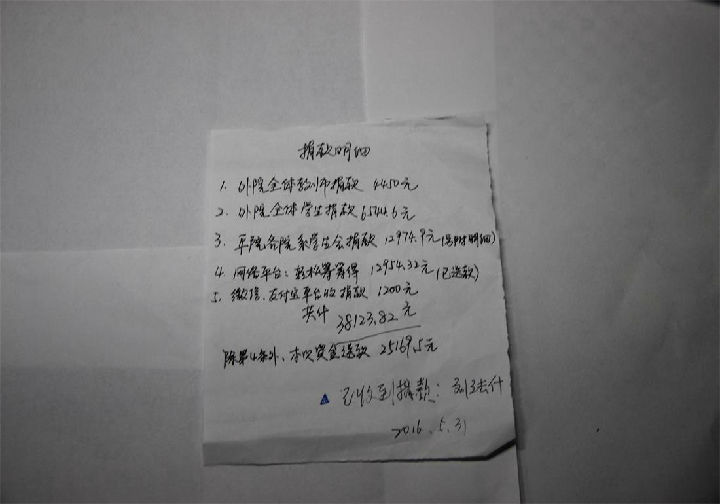 捐款明细
1. 外院全体教师捐款 4450元
2. 外院全体学生捐款 6544.6元
3. 院各院系学生会捐款 12974.9元(另附明细)
4. 网络平台：轻松筹筹得 12954.32元(已送款)
5. 微信、支付宝平台收捐款 1200元
共计 38123.82元
除第4条外、本次资金送款 25169.5元
已收到捐款：
2016.5.31